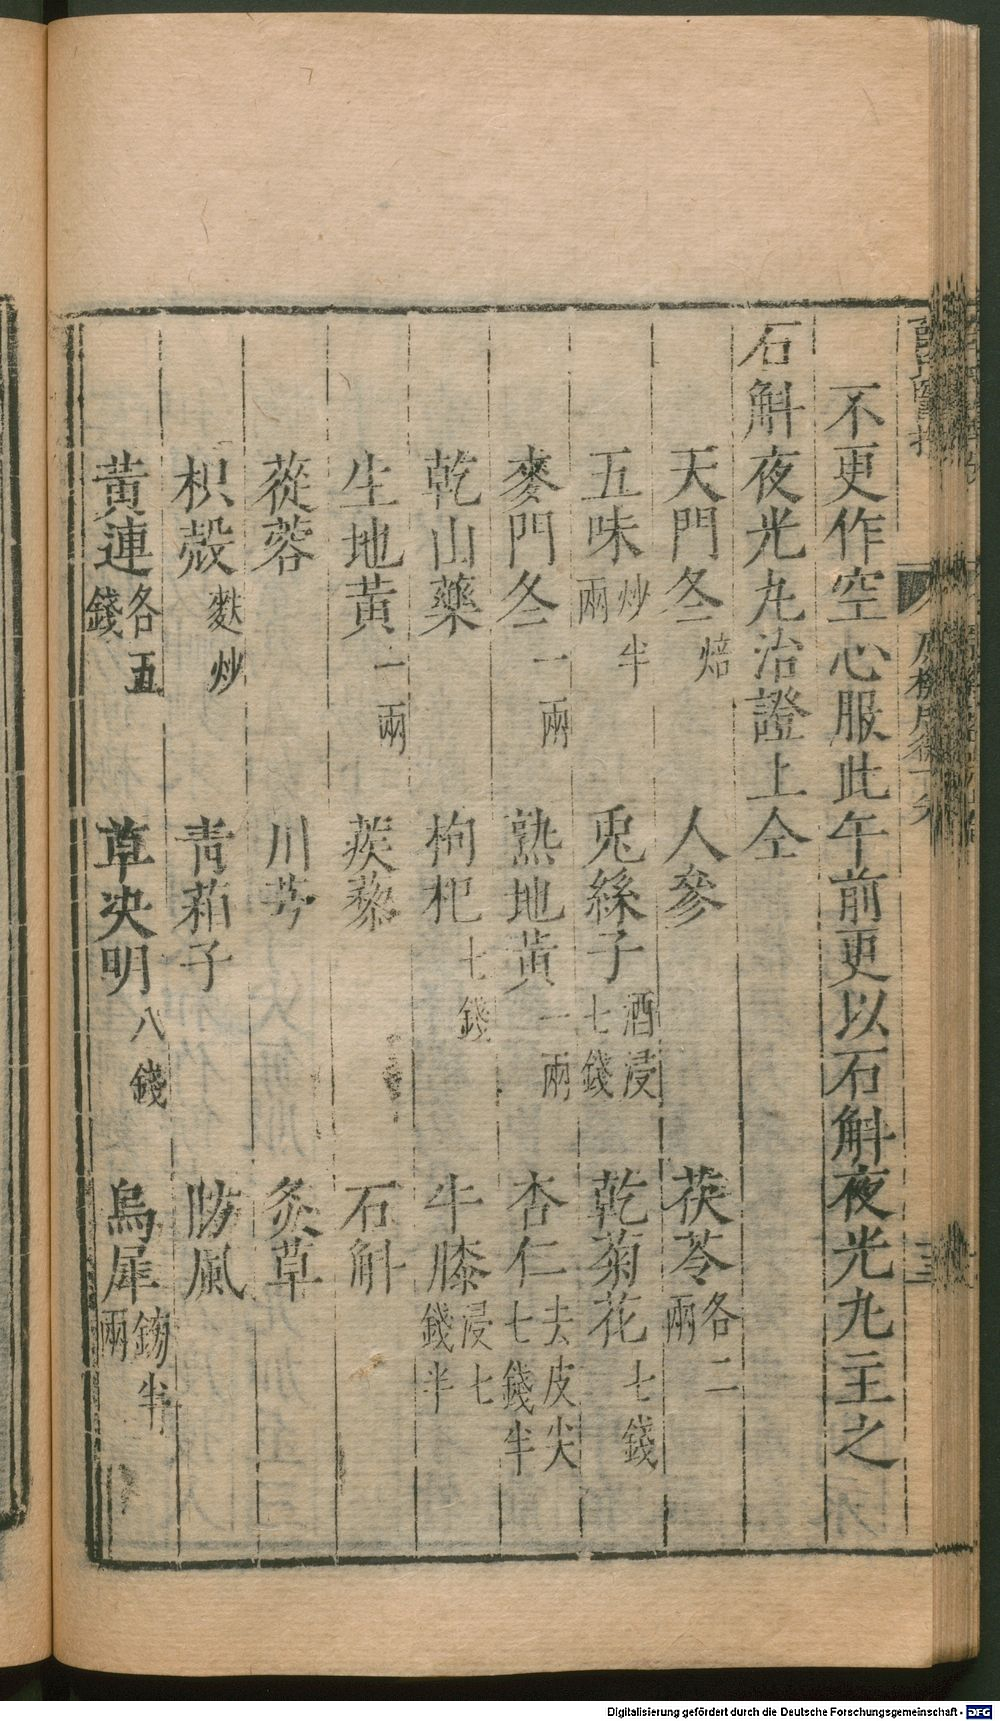 不更作空心服此午前更以石斛夜光丸主之
石斛夜光丸治證上仝
天門冬焙 人參 茯苓各二兩
五味炒半兩 兎絲子酒浸七錢 乾菊花七錢
麥門冬一兩 熟地黃一兩 杏仁去皮尖七錢半
乾山藥 枸杞七錢 牛膝浸七錢半
生地黃一兩 蒺藜 石斛
蓯蓉 川芎 炙草
枳殻麩炒 青葙子 防風
黃連各五錢 草決明八錢 烏犀鎊半兩
Digitalisierung gefördert durch die Deutsche Forschungsgemeinschaft - DFG